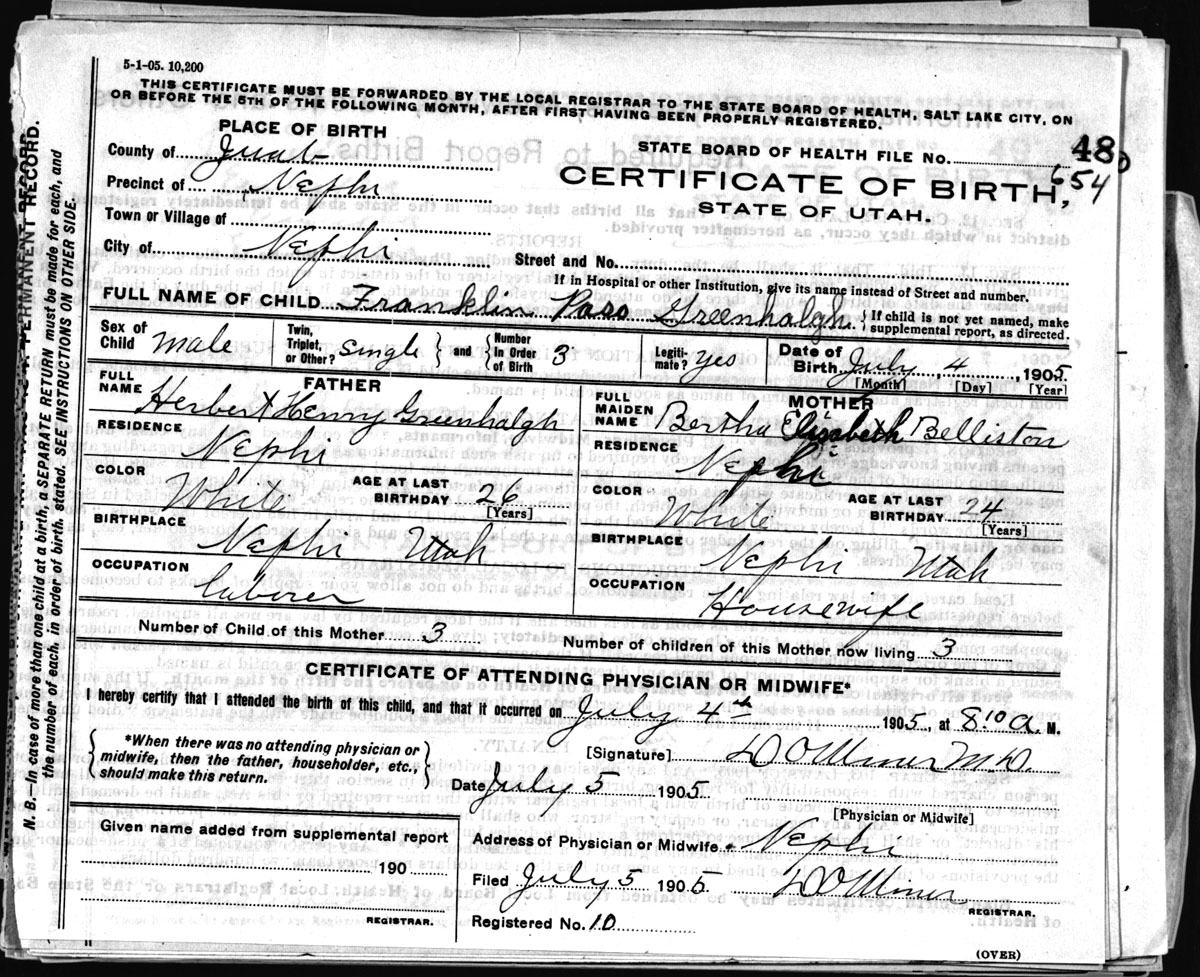 5-1-05. 10,200
THIS CERTIFICATE MUST BE FORWARDED BY THE LOCAL REGISTRAR TO THE STATE BOARD OF HEALTH, SALT LAKE CITY, ON
OR BEFORE THE 5TH OF THE FOLLOWING MONTH, AFTER FIRST HAVING BEEN PROPERLY REGISTERED.
PLACE OF BIRTH
STATE BOARD OF HEALTH FILE No. 48
654
County of Juab
CERTIFICATE OF BIRTH,
Precinct of Nephi
STATE OF UTAH.
Town or Village of
City of Nephi Street and No.
If in Hospital or other Institution, give its name instead of Street and number.
FULL NAME OF CHILD Franklin Pass Greenhalgh { If child is not yet named, make
supplemental report, as directed.
Sex of Child male Twin, Triplet, or Other? single and Number in Order of Birth 3 Legiti- mate? yes Date of Birth July 4 1905
[Month] [Day] [Year]
FATHER
FULL NAME Herbert Henry Greenhalgh
RESIDENCE
Nephi
COLOR White AGE AT LAST BIRTHDAY 26
[Years]
BIRTHPLACE
Nephi Utah
OCCUPATION
Laberer
MOTHER
FULL MAIDEN NAME Bertha Elizabeth Belliston
RESIDENCE Nephi
COLOR White AGE AT LAST BIRTHDAY 24
[Years]
BIRTHPLACE
Nephi Utah
OCCUPATION
Housewife
Number of Child of this Mother 3 Number of children of this Mother now living 3
CERTIFICATE OF ATTENDING PHYSICIAN OR MIDWIFE*
I hereby certify that I attended the birth of this child, and that it occurred on July 4th 1905, at 8 10 a. M.
*When there was no attending physician or
midwife, then the father, householder, etc.,
should make this return.
[Signature] M.D.
Date July 5 1905
[Physician or Midwife]
Given name added from supplemental report
190
REGISTRAR.
Address of Physician or Midwife Nephi
Filed July 5 1905
REGISTRAR.
Registered No. 10
(OVER)
N. B.—In case of more than one child at a birth, a SEPARATE RETURN must be made for each, and
the number of each, in order of birth, stated. SEE INSTRUCTIONS ON OTHER SIDE.
PERMANENT RECORD.